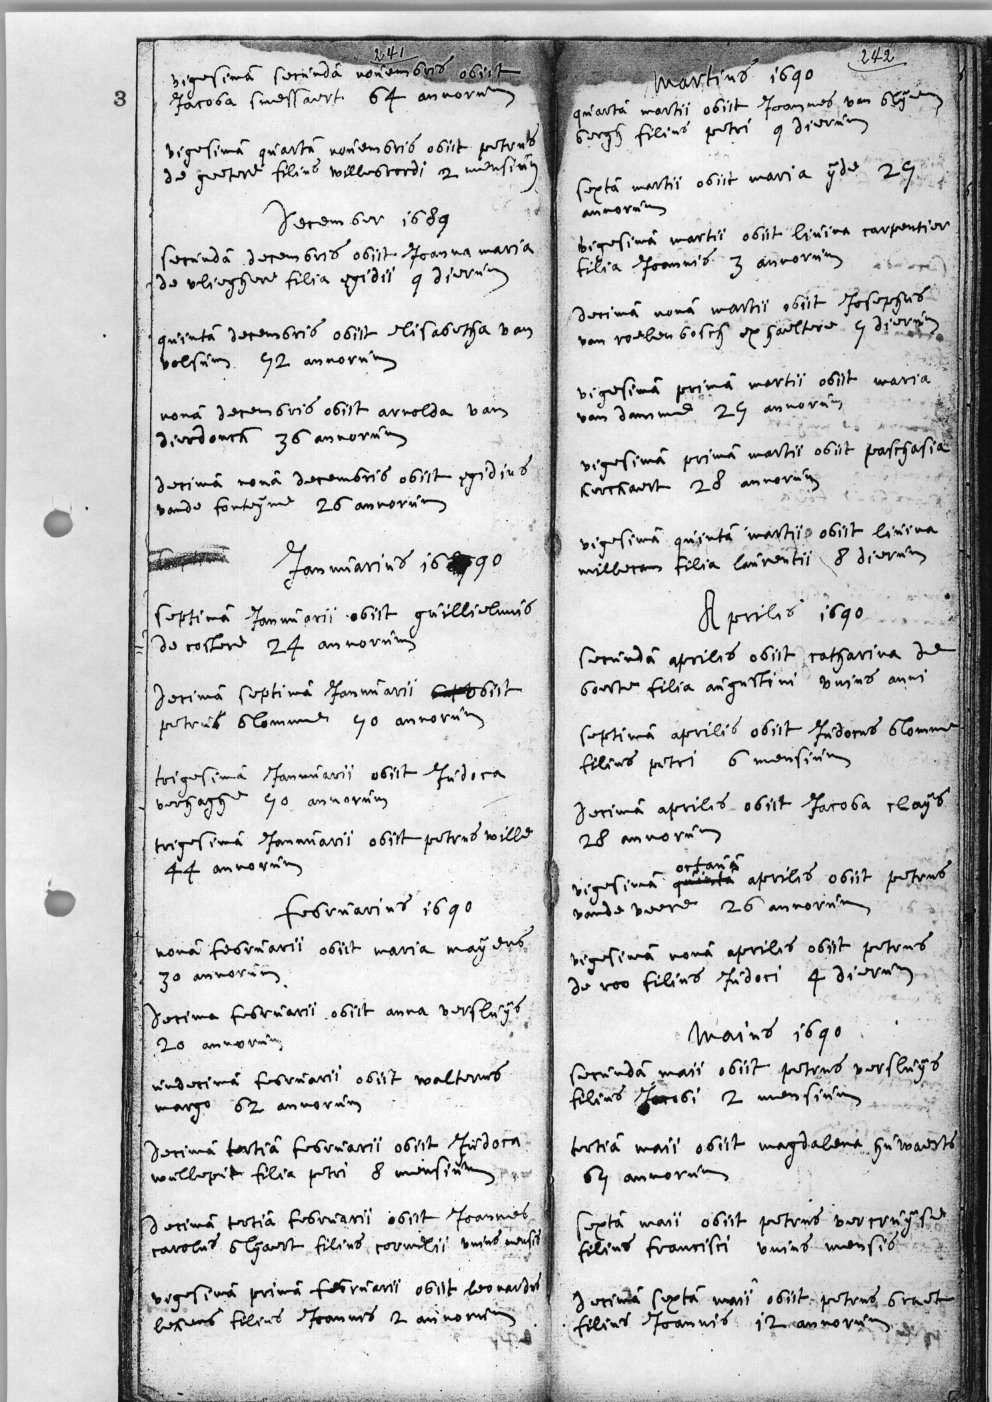 241
3
vigesimâ secundâ novembris obiit
Jacoba snessaert 64 annorum
vigesimâ quartâ novembris obiit petrus
de geetere filius willebrordi 2 mensium
December 1689
secundâ decembris obiit Joanna maria
de vlieghere filia egidii 9 dierum
quintâ decembris obiit elisabetha van
volsum 72 annorum
nonâ decembris obiit arnolda van
dierdonck 36 annorum
decimâ nonâ decembris obiit egidius
vande fonteyne 26 annorum
Januarius 1690
septimâ Januarii obiit guillielmus
de costere 24 annorum
decimâ septimâ Januarii obiit
petrus blomme 70 annorum
trigesimâ Januarii obiit Judoca
verhaghe 70 annorum
trigesimâ Januarii obiit petrus wille
44 annorum
februarius 1690
nonâ februarii obiit maria mayens
30 annorum
Decima februarii obiit anna versluijs
20 annorum
undecimâ februarii obiit walterus
margo 62 annorum
Decimâ tertiâ februarii obiit Judoca
wullepit filia petri 8 mensium
Decimâ tertiâ februarii obiit Joannes
carolus filius cornelii unius mensis
vigesimâ primâ februarii obiit leonardus
filius Joannis 2 annorum
242
Martius 1690
quartâ martii obiit Joannes van
bergh filius petri 9 dierum
sextâ martii obiit maria ÿde 27
annorum
vigesimâ martii obiit livina carpentier
filia Joannis 3 annorum
decimâ nonâ martii obiit Josephus
van roebenbosch ex haeltere 7 dierum
vigesimâ primâ martii obiit maria
van damme 27 annorum
vigesimâ primâ martii obiit paschasia
kerckaert 28 annorum
vigesimâ quintâ martii obiit livina
willecam filia laurentii 8 dierum
Aprilis 1690
secundâ aprilis obiit catharina de
boeste filia augustini unius anni
septimâ aprilis obiit Judocus blomme
filius petri 6 mensium
Decimâ aprilis obiit Jacoba claijs
28 annorum
octavâ
vigesimâ quintâ aprilis obiit petrus
vande veere 26 annorum
vigesimâ nonâ aprilis obiit petrus
de roo filius Judoci 4 dierum
Maius 1690
secundâ maii obiit petrus versluijs
filius Jacobi 2 mensium
tertiâ maii obiit magdalena huwaerts
67 annorum
sextâ maii obiit petrus vercruijsse
filius francisci unius mensis
Decimâ sextâ maii obiit petrus braet
filius Joannis 12 annorum